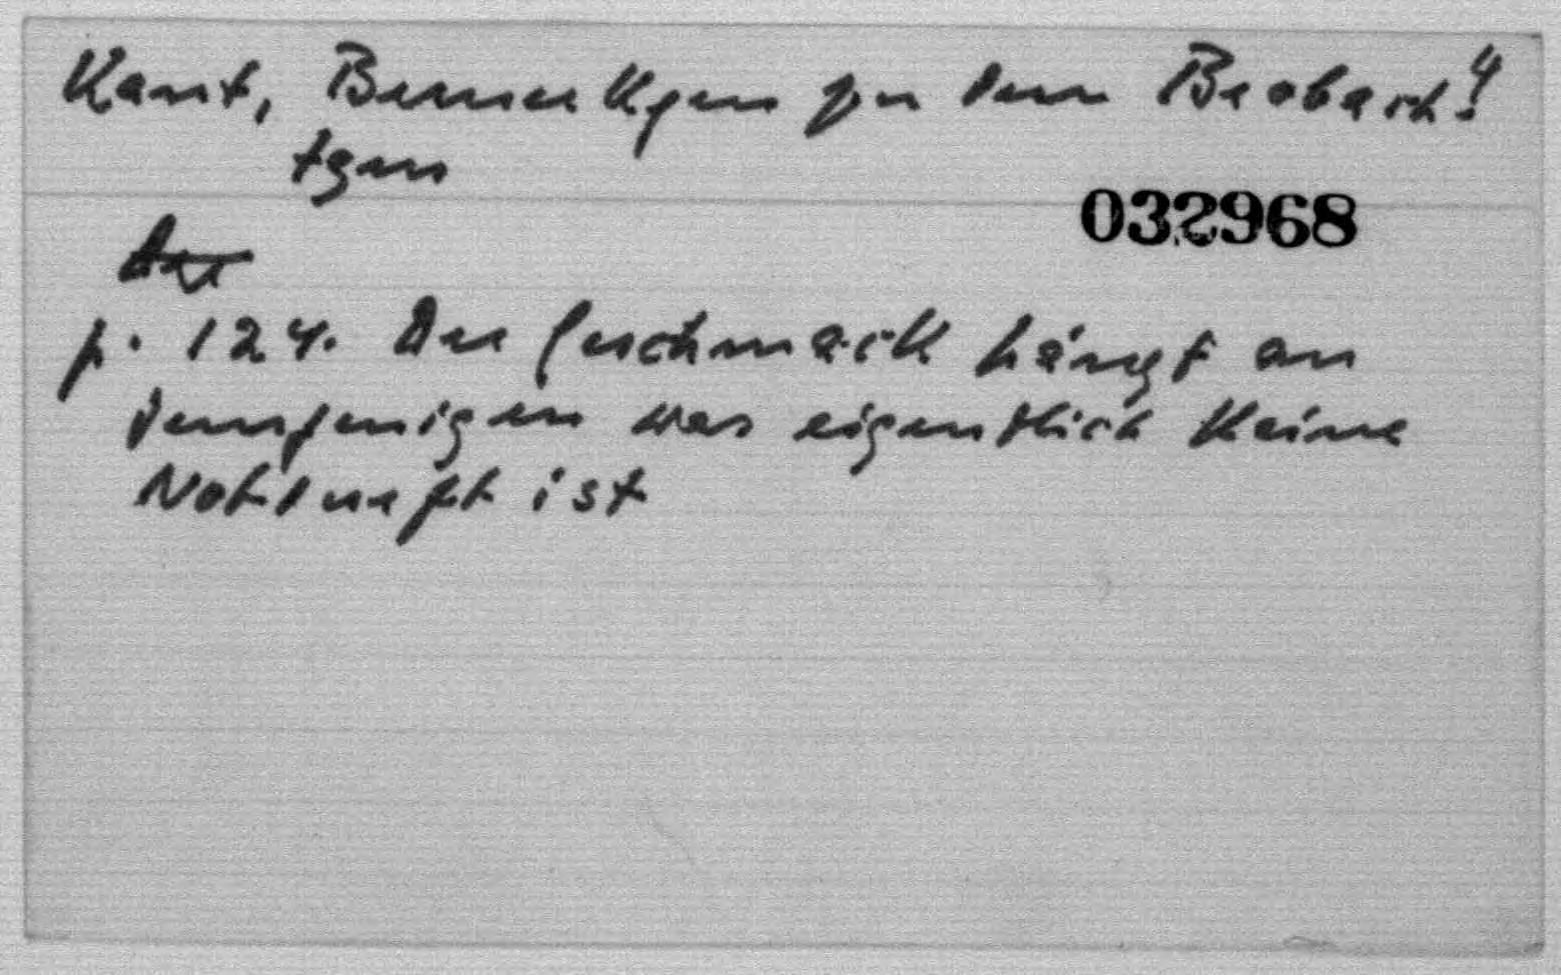 Kant, Bemerkgen zu den Beobach-
tgen
032968
Der
p. 124. Der Geschmack hängt an
demjenigen was eigentlich keine
Nothdurft ist